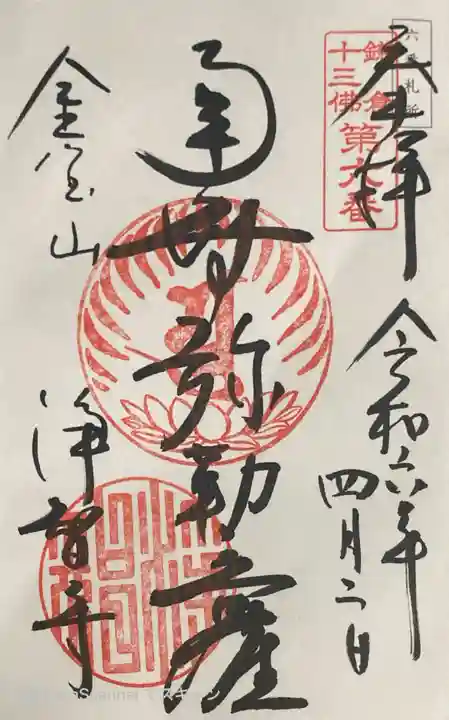 六番札所
鎌倉
十三佛第六番
奉拝
令和六年
四月二日
南無弥勒
金宝山
淨智寺